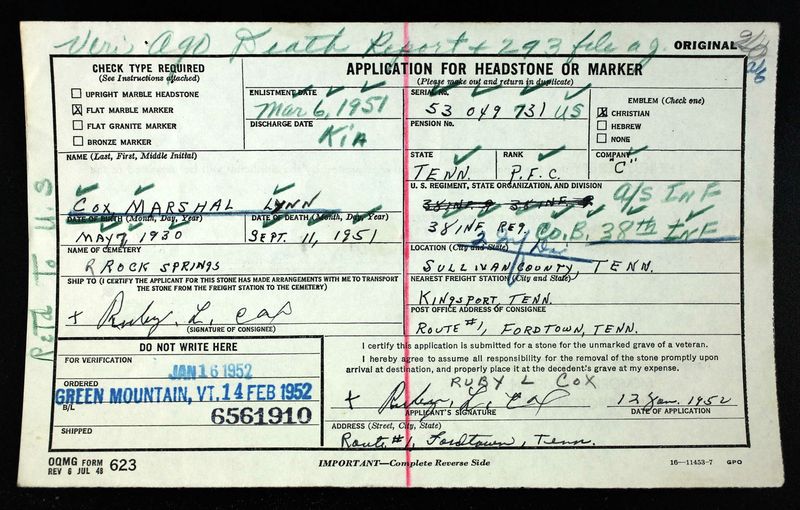 Veris Ago Death Report + 293 file a.g.
ORIGINAL
CHECK TYPE REQUIRED
(See Instructions attached)
UPRIGHT MARBLE HEADSTONE
X FLAT MARBLE MARKER
FLAT GRANITE MARKER
BRONZE MARKER
APPLICATION FOR HEADSTONE OR MARKER
(Please make out and return in duplicate)
ENLISTMENT DATE
Mar 6, 1951
DISCHARGE DATE
KIA
SERIAL No.
53 049 731 US
PENSION No.
EMBLEM (Check one)
X CHRISTIAN
HEBREW
NONE
NAME (Last, First, Middle Initial)
COX MARSHAL LYNN
STATE
TENN.
RANK
P.F.C.
COMPANY
"C"
U. S. REGIMENT, STATE ORGANIZATION, AND DIVISION
a/s INF
38 INF REG. CO. B. 38th INF
DATE OF BIRTH (Month, Day, Year)
MAY 7, 1930
DATE OF DEATH (Month, Day, Year)
SEPT. 11, 1951
NAME OF CEMETERY
ROCK SPRINGS
LOCATION (City and State)
SULLIVAN COUNTY, TENN.
SHIP TO (I CERTIFY THE APPLICANT FOR THIS STONE HAS MADE ARRANGEMENTS WITH ME TO TRANSPORT
THE STONE FROM THE FREIGHT STATION TO THE CEMETERY)
+ Ruby. L. Cox
(SIGNATURE OF CONSIGNEE)
NEAREST FREIGHT STATION (City and State)
KINGSPORT, TENN.
POST OFFICE ADDRESS OF CONSIGNEE
ROUTE #1, FORDTOWN, TENN.
Retd To U.S
DO NOT WRITE HERE
FOR VERIFICATION
JAN 16 1952
ORDERED
GREEN MOUNTAIN, VT. 14 FEB 1952
B/L
6561910
SHIPPED
I certify this application is submitted for a stone for the unmarked grave of a veteran.
I hereby agree to assume all responsibility for the removal of the stone promptly upon
arrival at destination, and properly place it at the decedent's grave at my expense.
RUBY L COX
+ Ruby. L. Cox 12 Jan. 1952
APPLICANT'S SIGNATURE DATE OF APPLICATION
ADDRESS (Street, City, State)
Route #1, Fordtown, Tenn.
OQMG FORM 623
REV 6 JUL 48
IMPORTANT—Complete Reverse Side
16—11453-7 GPO